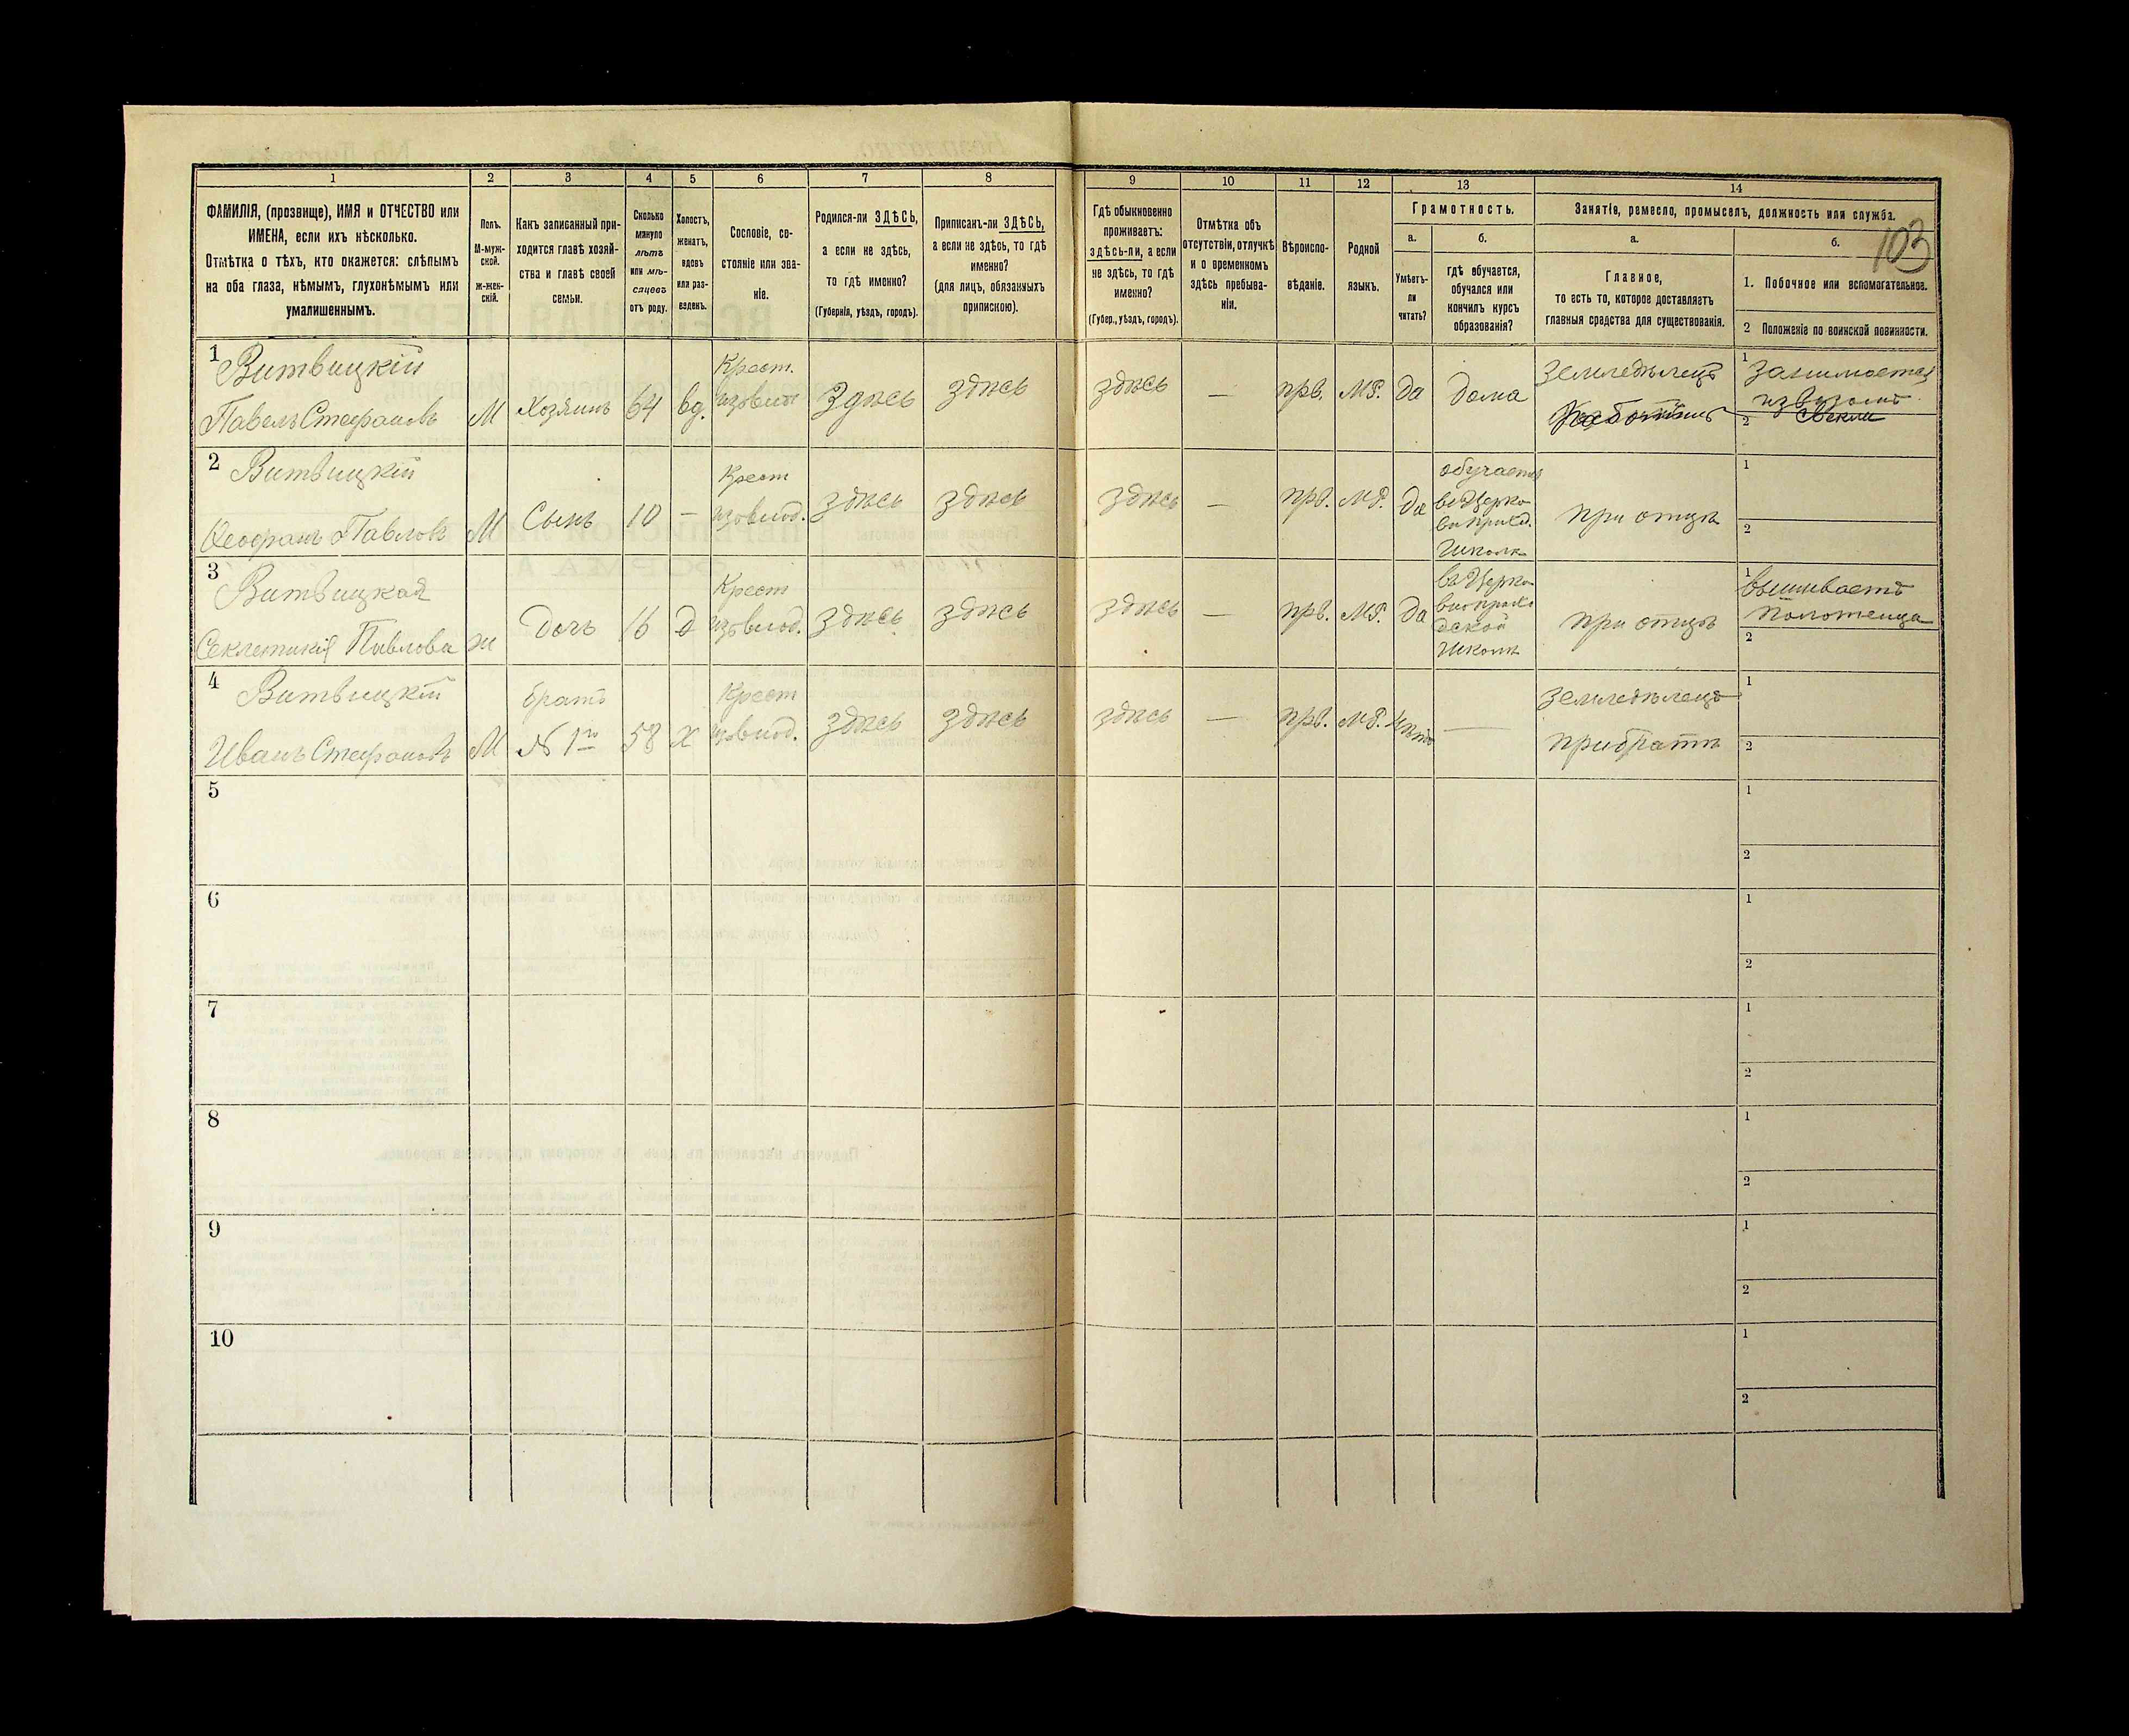 1 2 3 4 5 6 7 8 9 10 11 12 13 14
ФАМИЛІЯ, (прозвище), ИМЯ и ОТЧЕСТВО или
ИМЕНА, если ихъ нѣсколько.
Отмѣтка о тѣхъ, кто окажется: слѣпымъ
на оба глаза, нѣмымъ, глухонѣмымъ или
умалишеннымъ.
Полъ.
М-муж-
ской.
ж-жен-
скій.
Какъ записанный при-
ходится главѣ хозяй-
ства и главѣ своей
семьи.
Сколько
минуло
лѣтъ
или мѣ-
сяцевъ
отъ роду.
Холостъ,
женатъ,
вдовъ
или раз-
веденъ.
Сословіе, со-
стояніе или зва-
ніе.
Родился-ли ЗДѢСЬ,
а если не здѣсь,
то гдѣ именно?
(Губернія, уѣздъ, городъ).
Приписанъ-ли ЗДѢСЬ,
а если не здѣсь, то гдѣ
именно?
(для лицъ, обязанныхъ
припискою).
Гдѣ обыкновенно
проживаетъ:
здѣсь-ли, а если
не здѣсь, то гдѣ
именно?
(Губер., уѣздъ, городъ).
Отмѣтка объ
отсутствіи, отлучкѣ
и о временномъ
здѣсь пребыва-
ніи.
Вѣроиспо-
вѣданіе.
Родной
языкъ.
Грамотность.
а.
Умѣетъ-
ли
читать?
б.
гдѣ обучается,
обучался или
кончилъ курсъ
образованія?
Занятіе, ремесло, промыселъ, должность или служба.
а.
Главное,
то есть то, которое доставляетъ
главныя средства для существованія.
б.
103
1. Побочное или вспомогательное.
2 Положеніе по воинской повинности.
1 Витвицкій
Павелъ Стефановъ
М
Хозяинъ
64
вд.
Крест.
Здѣсь
здѣсь
здѣсь
—
прв.
М.Р.
да
дома
земледѣлецъ
1 занимается
извозомъ
2 свекли
2 Витвицкій
Феофанъ Павловъ
М
Сынъ
10
—
Крест
здѣсь
здѣсь
здѣсь
—
прв.
М.Р.
да
обучается
въ Церко
школѣ
при отцѣ
1
2
3 Витвицкая
Секлетикія Павлова
ж
Дочь
16
д
Крест
здѣсь
здѣсь
здѣсь
—
прв.
М.Р.
да
въ Церко
дской
школѣ
при отцѣ
1 вышиваетъ
полотенца
2
4 Витвицкій
Иванъ Стефановъ
М
братъ
№ 1го
58
х
Крест
здѣсь
здѣсь
здѣсь
—
прв.
М.Р.
нѣтъ
—
земледѣлецъ
при братѣ
1
2
5
1
2
6
1
2
7
1
2
8
1
2
9
1
2
10
1
2